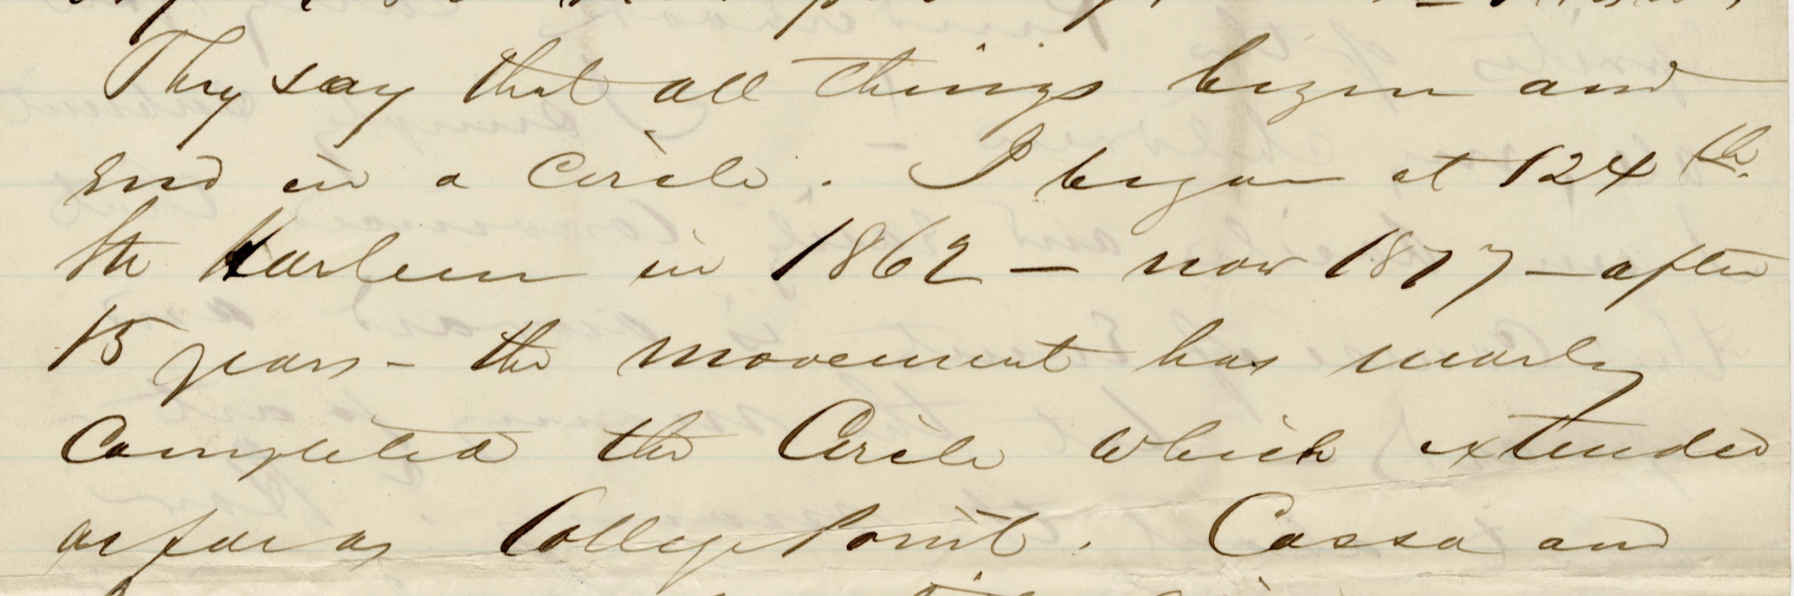 They say that all things begin and
End in a Circle. I began at 124th.
Str Harlem in 1862 — now 1877 — after
15 years - the movement has nearly
Completed the Circle which extended
as far as College Point. Cassa and